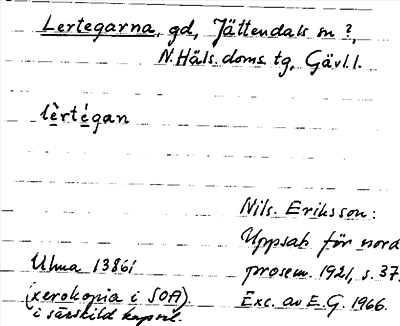 Lertegarna, gd, Jättendals sn ?,
N. Häls. doms. tg, Gävl. l.
lèrtégan
Nils. Eriksson:
Uppsats för nord.
Ulma 13861
prosem. 1921, s. 37.
(xerokopia i SOA).
Exc. av E.G. 1966.
i särskild kapsel.